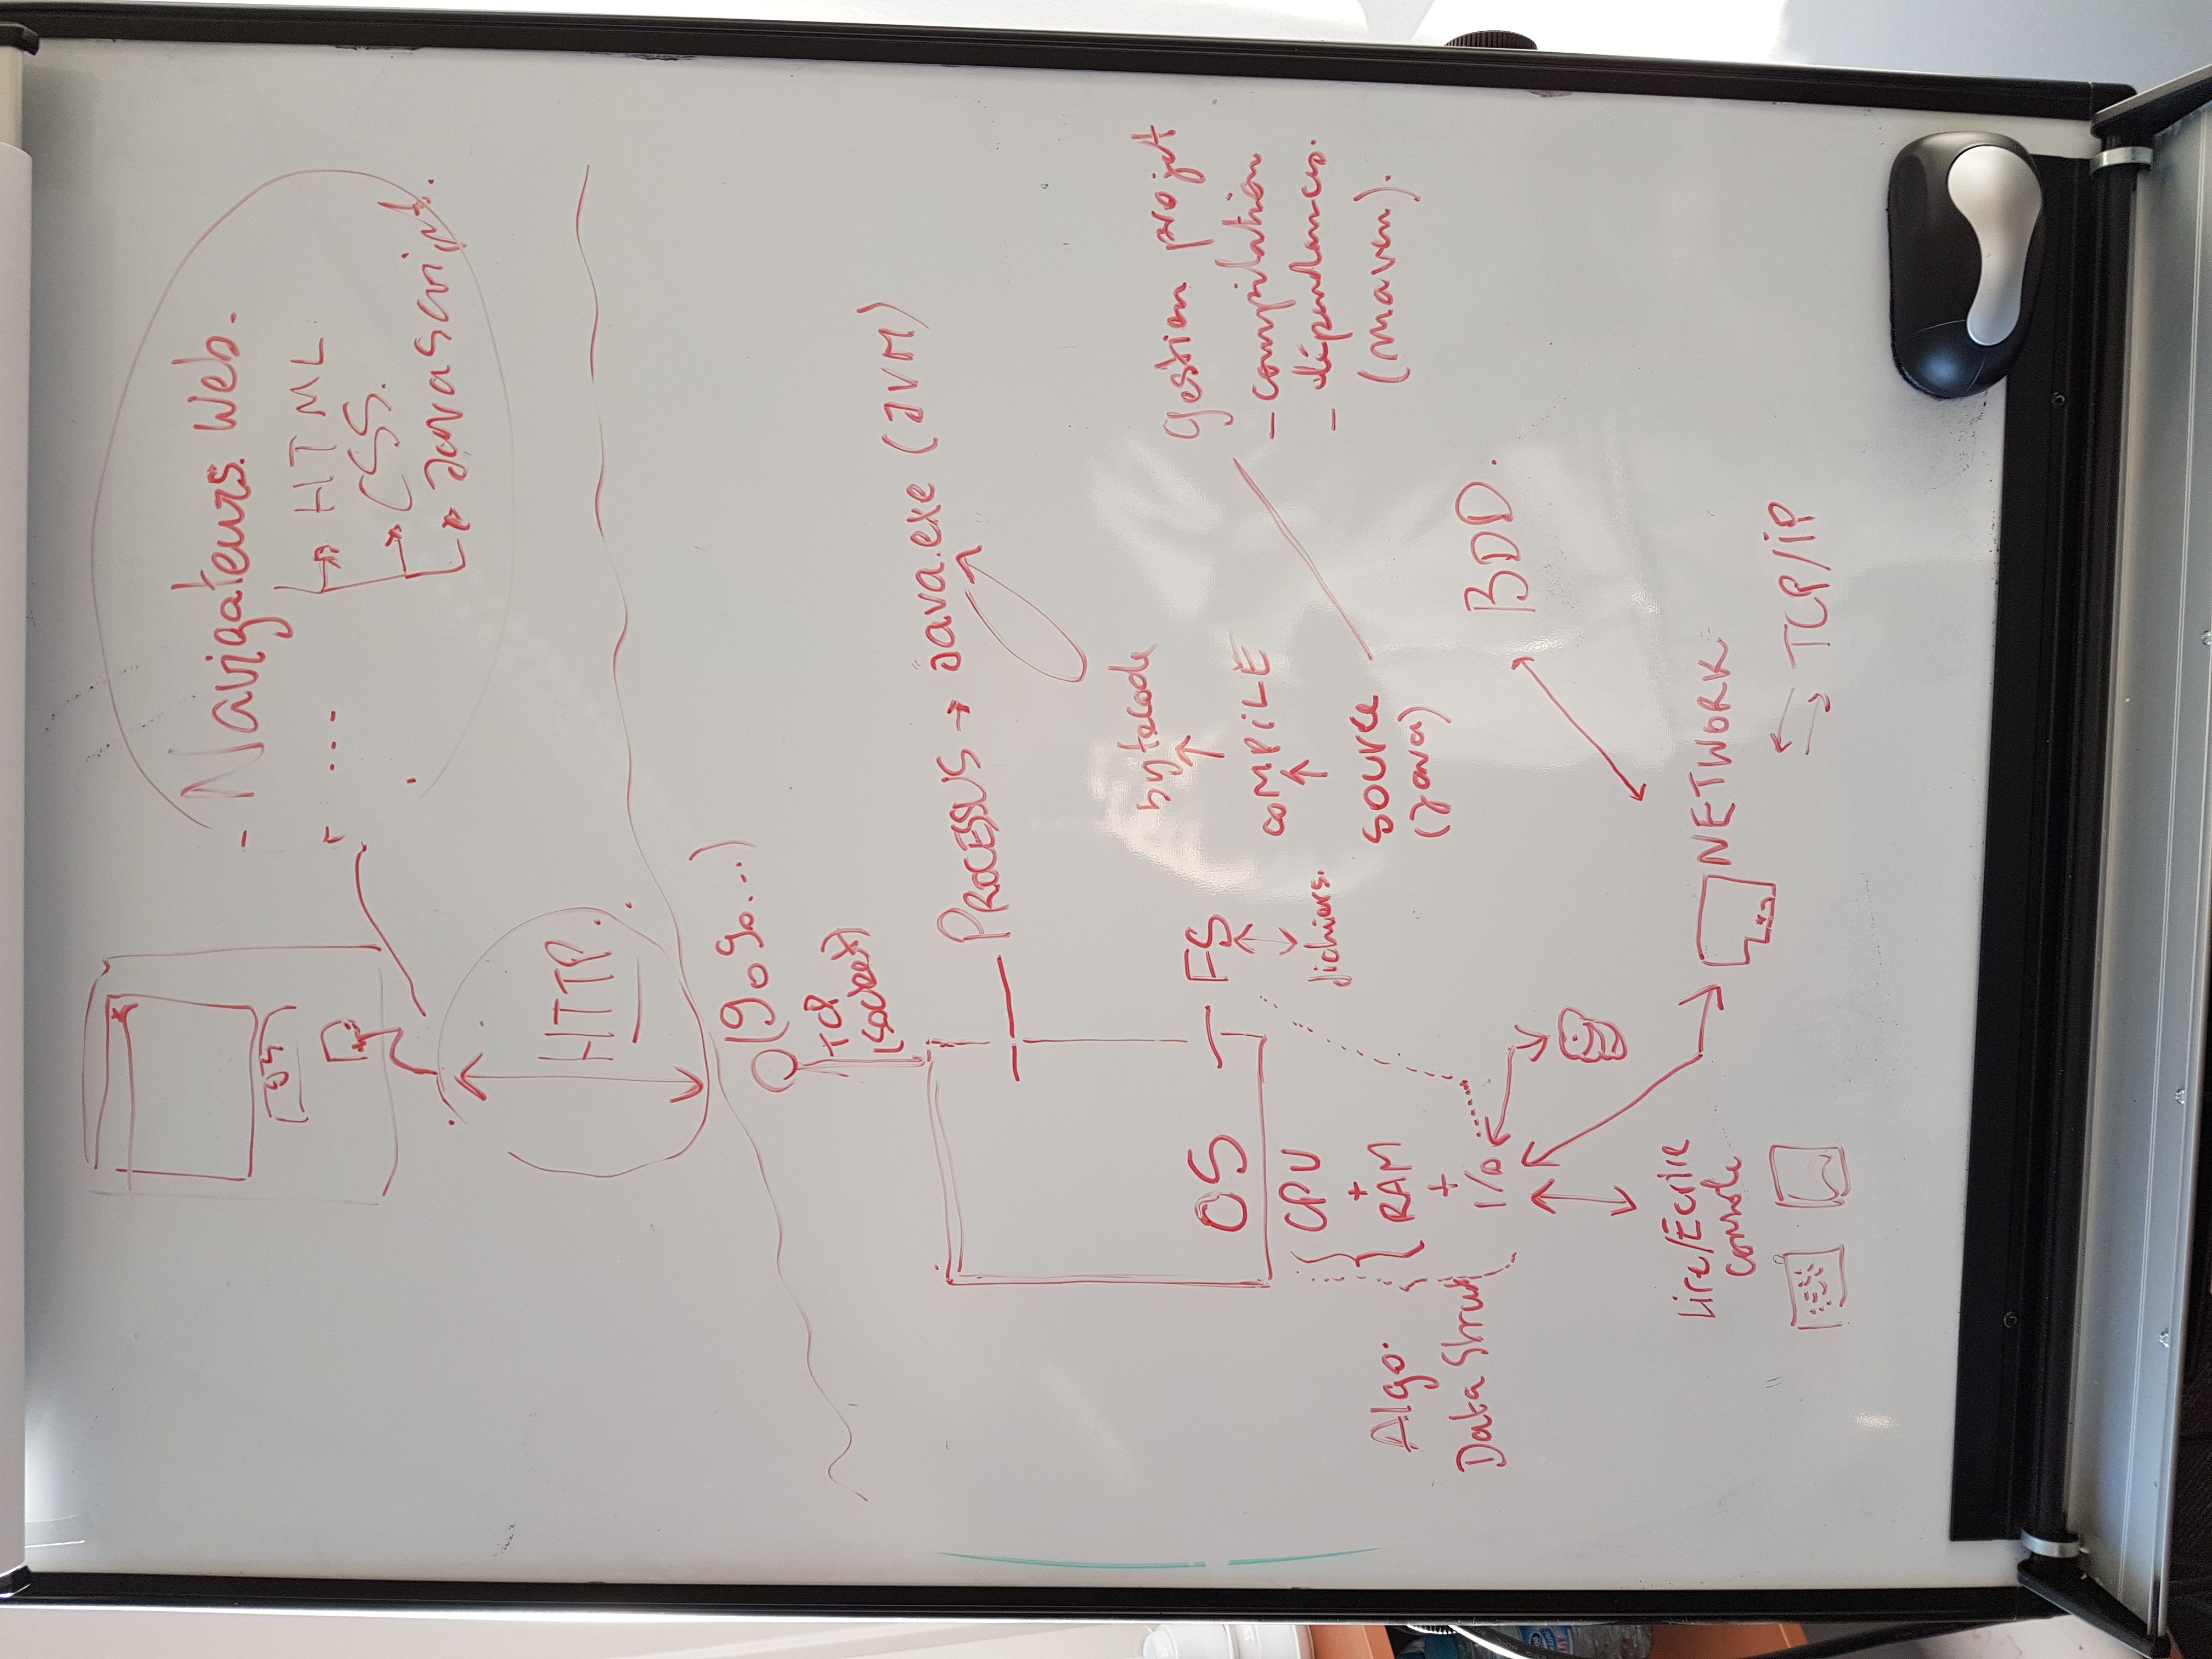 - Navigateurs Web.
...
HTML
CSS.
Javascript.
OS
HTTP.
(9090...)
TCP
(socket)
PROCESSUS → Java.exe (JVM)
bytecode
COMPILE
source
(Java)
Gestion projet
- compilation
- dépendances.
(maven).
OS
FS
fichiers.
CPU
+
RAM
+
I/O
Algo.
Data Struct
BDD.
Lire/Ecrire
console
NETWORK
TCP/IP